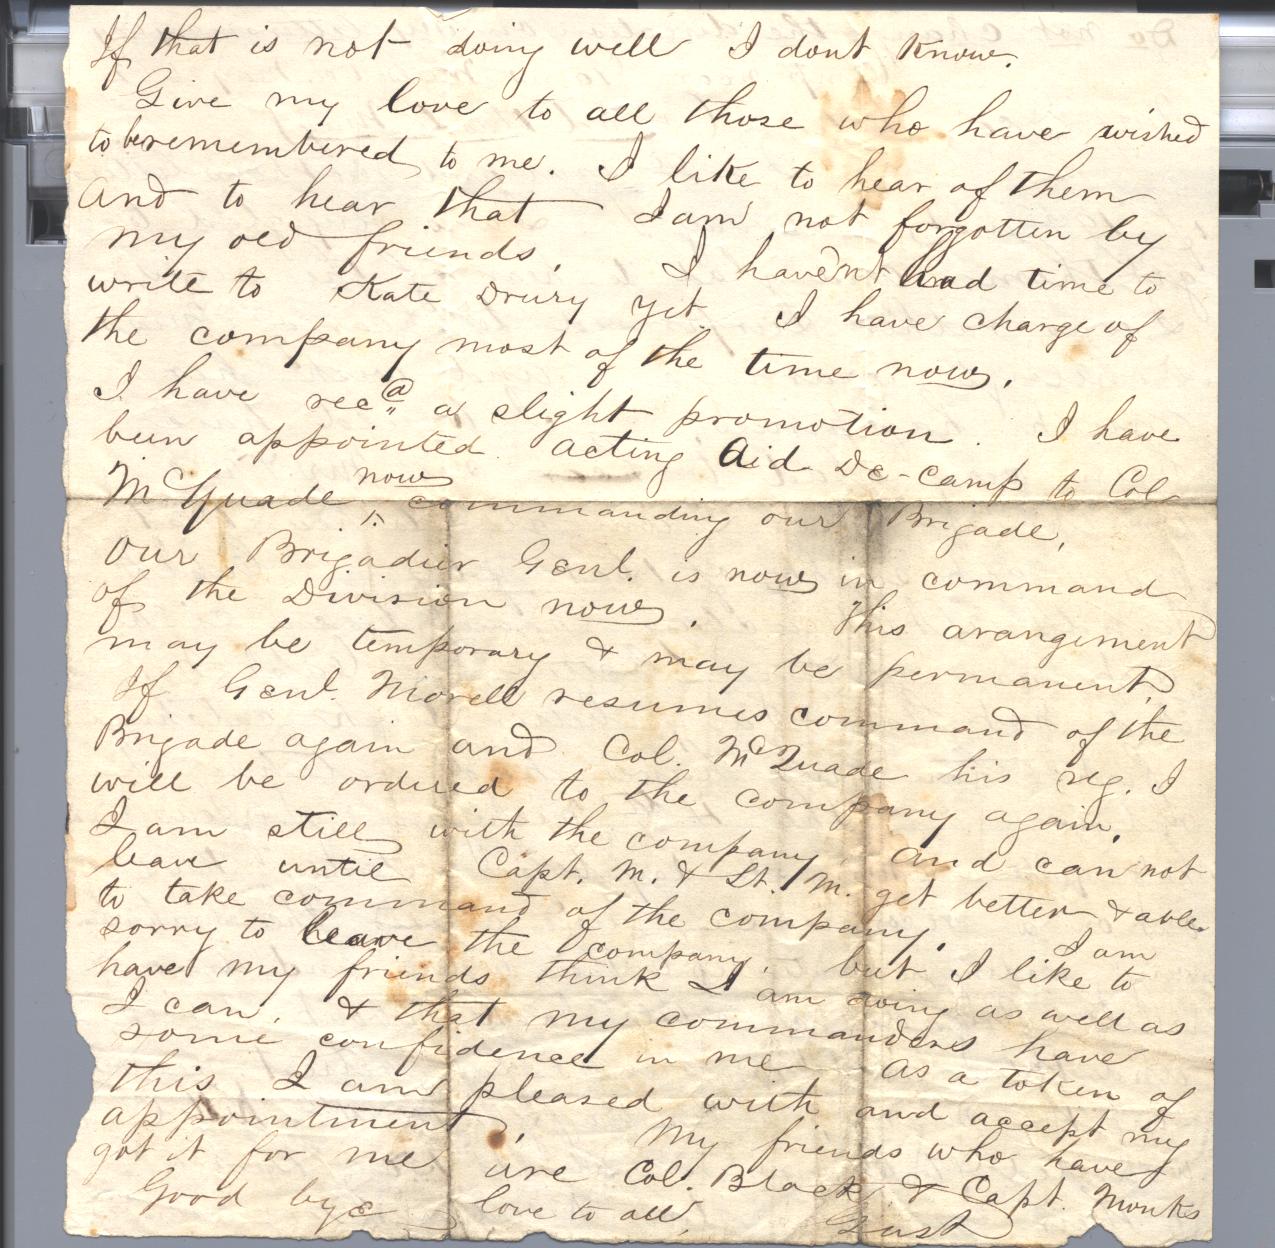 If that is not doing well I dont know.
Give my love to all those who have wished
to be remembered to me. I like to hear of them
and to hear that I am not forgotten by
my old friends. I havent had time to
write to Kate Drury yet. I have charge of
the company most of the time now.
I have recd a slight promotion. I have
been appointed acting Aid De-camp to Col
McQuade now commanding our Brigade,
our Brigadier Genl. is now in command
of the Division now. This arangement
may be temporary & may be permanent.
If Genl. Morell resumes command of the
Brigade again and Col. McQuade his reg. I
will be ordered to the company again.
I am still with the company and can not
leave until Capt. M. & Lt. M. get better & able
to take command of the company. I am
sorry to leave the company. but I like to
have my friends think I am doing as well as
I can, & that my commanders have
some confidence in me As a token of
this I am pleased with and accept my
appointment. My friends who have
got it for me are Col. Black & Capt. Monks
Good bye love to all, Gust